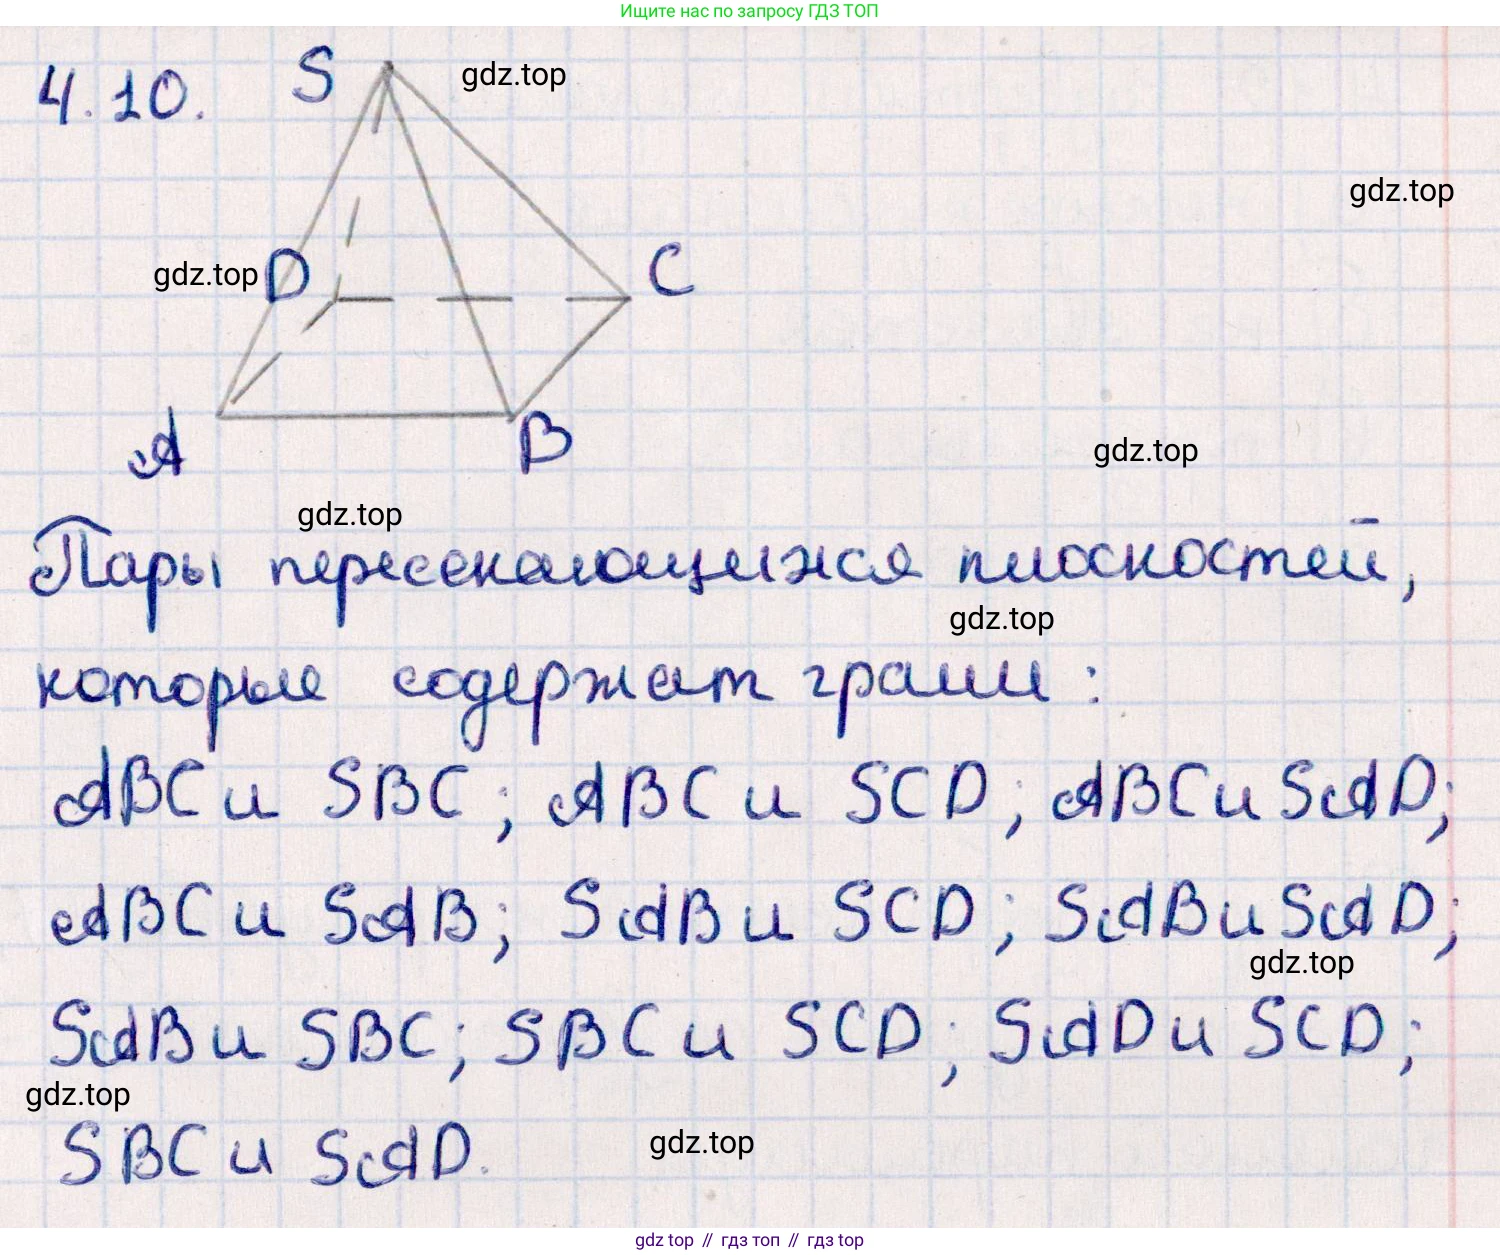 Ищите нас по запросу ГДЗ ТОП
4.10.
S
gdz.top
gdz.top
gdz.top
D
C
A
B
gdz.top
gdz.top
Пары пересекающихся плоскостей,
gdz.top
которые содержат грани:
ABC и SBC; ABC и SCD; ABC и SAD;
ABC и SAB; SAB и SCD; SAB и SAD;
gdz.top
SAB и SBC; SBC и SCD; SAD и SCD;
gdz.top
SBC и SAD.
gdz.top
gdz top // гдз топ // гдз top